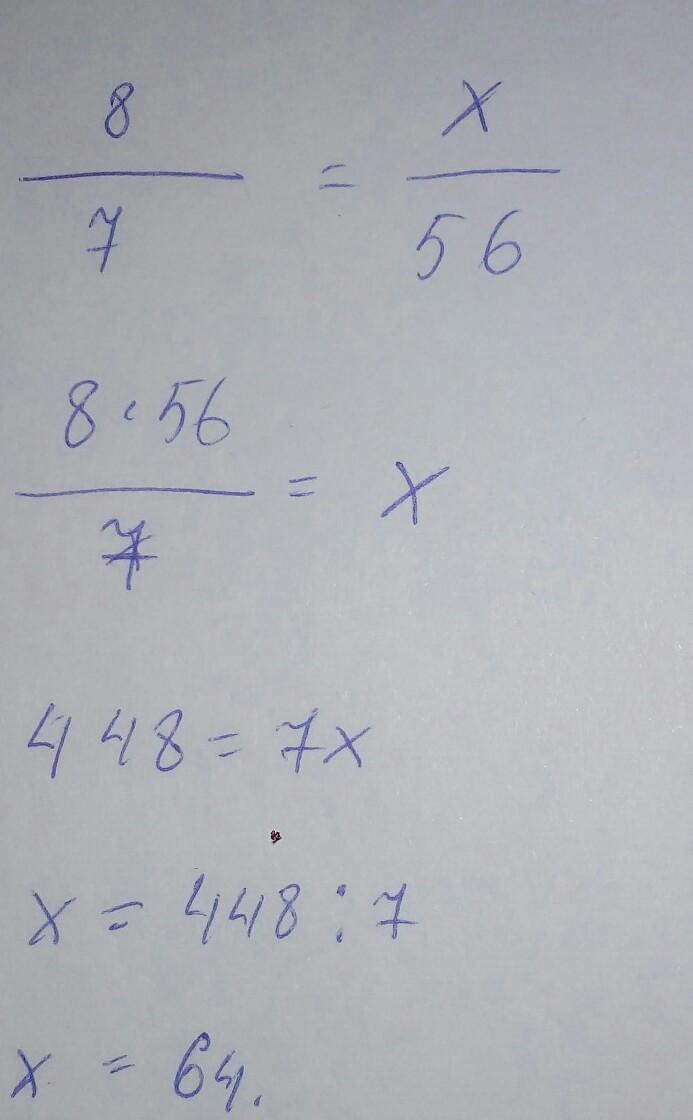 8/7 = x/56
8·56/7 = x
448 = 7x
x = 448 : 7
x = 64.